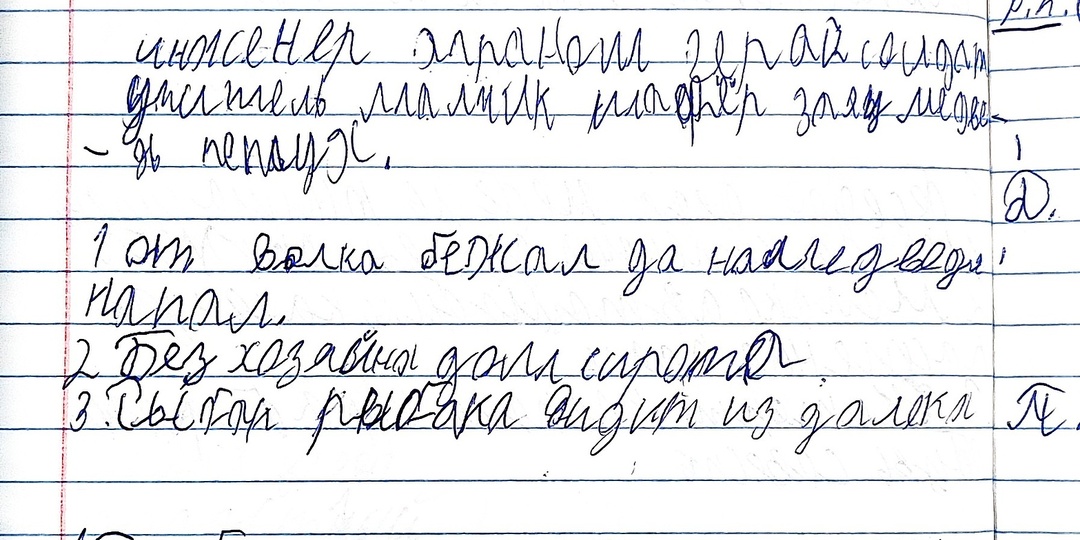 инженер агроном герай солдат
учитель малчик шофёр заяц медве
- дь петух.
р.п.
1 от волка бежал да на медведя
Д.
напал.
2 Без хозяина дом сирота.
3. рыбак рыбака видит из далека
П.